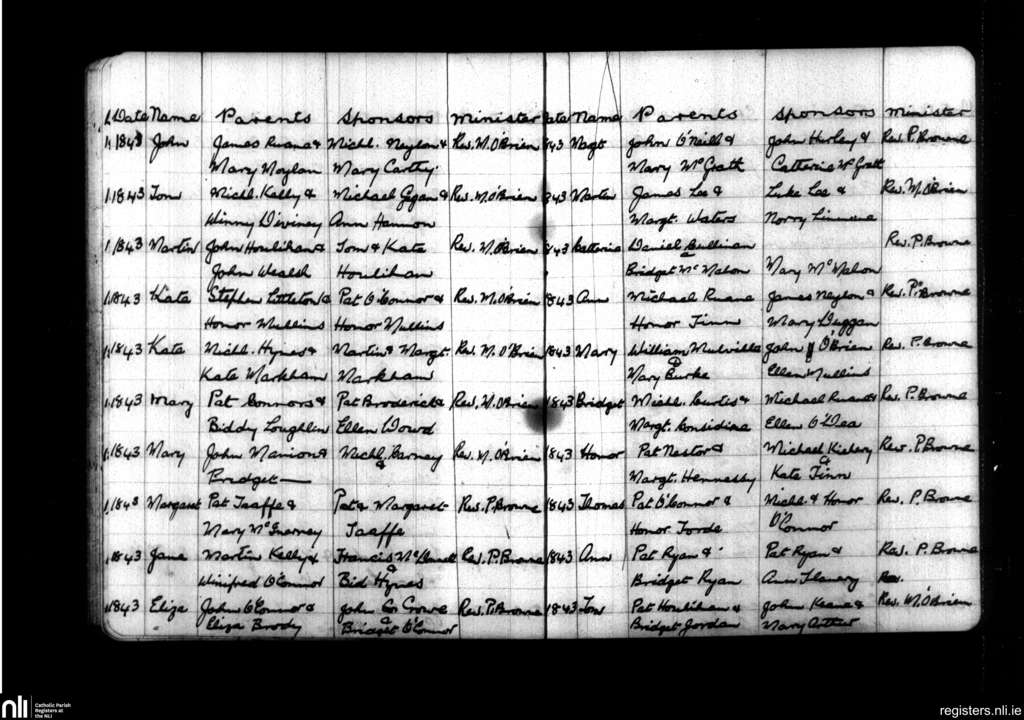 Date Name Parents Sponsors Minister
1843 John James Ruane & Michl. Neylon & Rev. M. O'Brien
Mary Moylan Mary Carthy
1843 Tom Michl. Kelly & Michael Gegan & Rev. M. O'Brien
Winny Diviney Ann Hannon
1843 Martin John Houlihan & Tom & Kate Rev. M. O'Brien
John Wealsh Houlihan
1843 Kate Stephen Littleton & Pat O'Connor & Rev. M. O'Brien
Honor Mullins Honor Mullins
1843 Kate Michl. Hynes & Martin & Margt. Rev. M. O'Brien
Kate Markham Markham
1843 Mary Pat Connors & Pat Broderick & Rev. M. O'Brien
Biddy Loughlin Ellen Dowd
1843 Mary John Manion & Michl. Carney Rev. M. O'Brien
Bridget — &
1843 Margaret Pat Taaffe & Pat & Margaret Rev. P. Browne
Mary McInerney Taaffe
1843 Jane Martin Kelly & Francis Rev. P. Browne
Winifred O'Connor & Bid Hynes
1843 Eliza John O'Connor & John Crowe Rev. P. Browne
Eliza Brody & Bridget O'Connor
ate Name Parents Sponsors Minister
843 Magt John O'Neill & John Hurley & Rev. P. Browne
Mary McGrath Catherine McGrath
843 Martin James Lee & Luke Lee & Rev. M. O'Brien
Margt. Waters Norry Linnane
843 Catterine Daniel Cullinan Rev. P. Browne
& Bridget McMahon Mary McMahon
1843 Ann Michael Ruane James Neylon & Rev. P. Browne
Honor Finn Mary Duggan
1843 Mary William Mulville John O'Brien Rev. P. Browne
& Mary Burke Ellen Mullins
1843 Bridget Michl. Curtis & Michael Ruane & Rev. P. Browne
Margt. Considine Ellen O'Dea
1843 Honor Pat Nestor & Michael Rev. P. Browne
Margt. Hennessy & Kate Finn
1843 Thomas Pat O'Connor & Michl. & Honor Rev. P. Browne
Honor Forde O'Connor
1843 Ann Pat Ryan & Pat Ryan & Rev. P. Browne
Bridget Ryan Ann Flanery
1843 Tom Pat Houlihan & John Keane & Rev. M. O'Brien
Bridget Jordan Mary Arthur
nli
Catholic Parish
Registers at
the NLI
registers.nli.ie